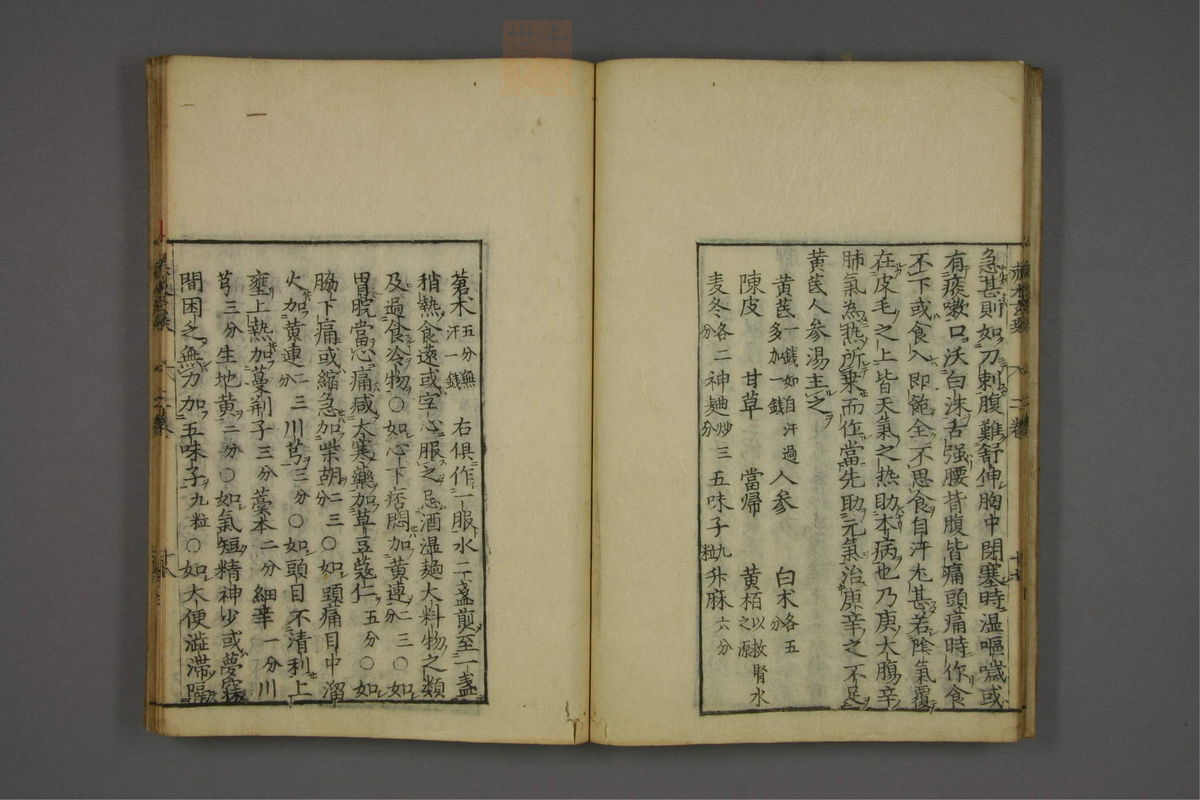 急甚則如刀刺腹難舒伸胸中閉塞時温嘔噦或
有痰嗽口沃白沫舌强腰背腹皆痛頭痛時作食
不下或食入即飽全不思食自汗尤甚若陰氣覆
在皮毛之上皆天氣之热助本病也乃庚大腸辛
肺氣為热所乗而作當先助元氣治庚辛之不足
黄芪人参湯主之
黄芪一錢如自汗過多加一錢 人参 白术各五分
陳皮 甘草 當帰 黄栢以救腎水之源
麦冬各二分 神麯炒三分 五味子九粒 升麻六分
蒼术五分無汗一錢 右俱作一服水二盞煎至一盞
稍熱食遠或空心服之忌酒温麺大料物之類
及過食冷物〇如心下痞悶加黄連二三分〇如
胃脘當心痛减大寒藥加草豆蔻仁五分〇如
脇下痛或縮急加柴胡二三分〇如頭痛目中溜
火加黄連二三分川芎三分〇如頭目不清利上
壅上熱加蔓荆子三分藁本二分細辛一分川
芎三分生地黄二分〇如氣短精神少或夢寐
間困乏無力加五味子九粒〇如大便澁滞隔